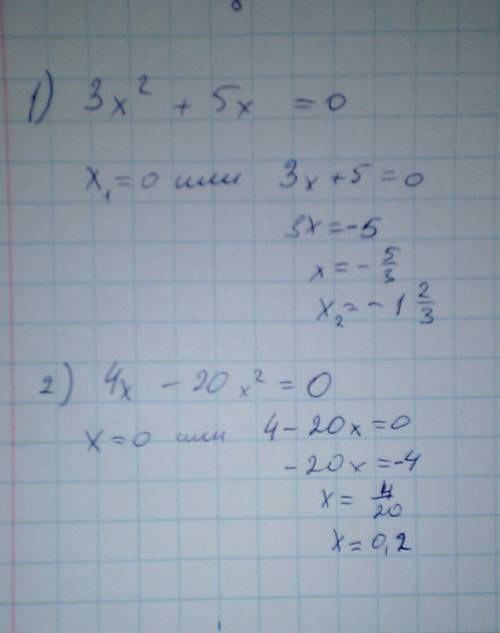 1) 3x² + 5x = 0
x₁ = 0 или 3x + 5 = 0
3x = -5
x = - 5/3
x₂ = - 1 2/3
2) 4x - 20x² = 0
x = 0 или 4 - 20x = 0
- 20x = -4
x = 4/20
x = 0,2